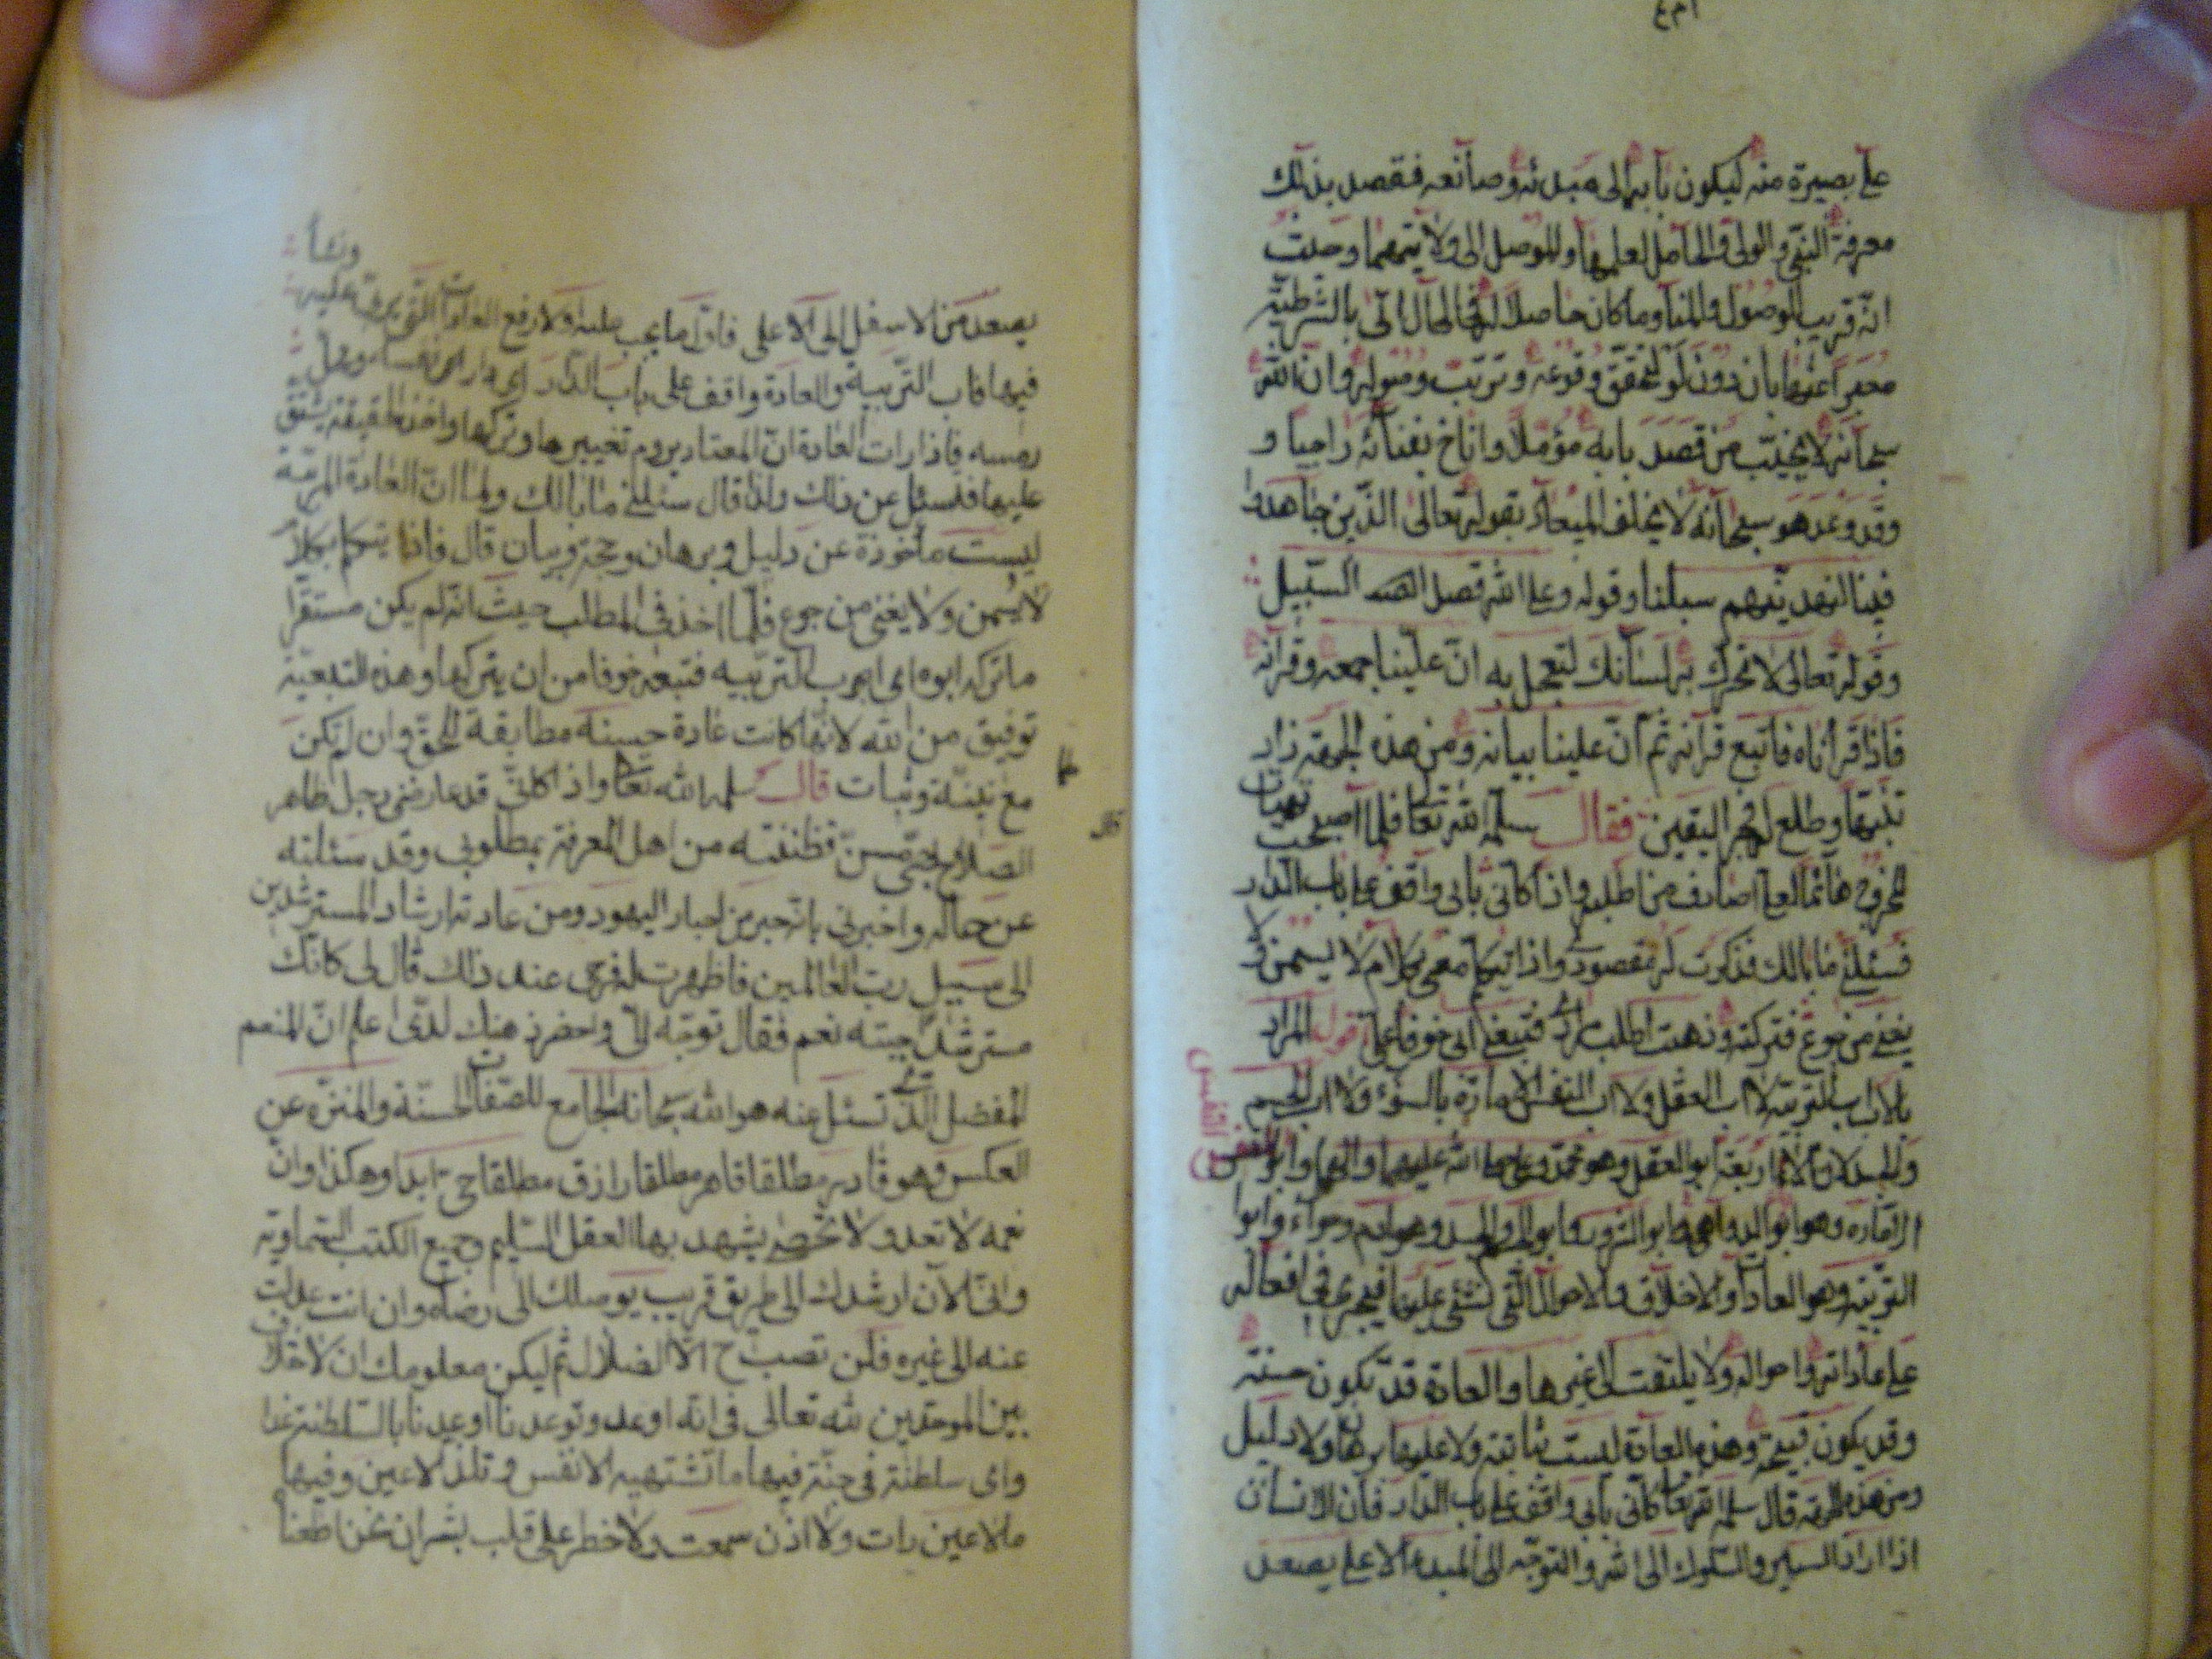 على بصيرة منه ليكون بابه الى مبدئه وصانعه فقصد بذلك
معرفة النبي والولي والحامل لعلمهما والموصل الى ولايتهما وحيث
انه قريب الوصول والمنا وما كان حاصلا له في الحال اتى بالشرطية
معبرا عنها بان دون لو لتحقق وقوعه وترتب وصوله وان الله
سبحانه لا يخيب من قصد بابه مؤملا واناخ بفنائه راجيا و
وقد وعد هو سبحانه لا يخلف الميعاد بقوله تعالى الذين جاهدوا
فينا لنهدينهم سبلنا وقوله وعلى الله قصد السبيل
وقوله تعالى لا تحرك به لسانك لتعجل به ان علينا جمعه وقرآنه
فاذا قرأناه فاتبع قرآنه ثم ان علينا بيانه ومن هذه الجهة زاد
تنبها وطلع له فجر اليقين فقال سلمه الله تعا فلما اصبح تهيأت
للخروج هائما لعلى اصادف من اطلبه واذا كانى بابى واقف على باب الدار
فسئلنى ما بالك فذكرت له مقصودى واذا يتكلم معى بكلام لا يسمن ولا
يغنى من جوع فتركته وذهبت اطلب فتبعنى ابى خوفا على قوله المراد
بالاب اب التربية لا اب العقل ولا اب النفس الامارة بالسوء ولا اب الجسم
والجسد لان الاباء اربعة ابو العقل وهو محمد وعلى صلى الله عليهما والهما وابو النفس
الامارة وهو ابو الدواهى وابو الشرور وابو الجسم والجسد وهو آدم وحواء وابو
التربية وهو العادات والاخلاق والاحوال التى نشئ عليها فيجرى فى افعاله
على عاداته واحواله ولا يلتفت الى غيرها والعادة قد تكون حسنة
وقد يكون قبيحة وهذه العادة ليست ثابتة ولا عليها برهان ولا دليل
ومن هذه الجهة قال سلمه الله تعا كانى بابى واقف على باب الدار فان الانسان
اذا اراد السير والسلوك الى الله والتوجه الى المبدء الاعلى يصعد
ونشأ
يصعد من الاسفل الى الاعلى فاول ما يجب عليه اولا رفع العادات التى نشأ عليها
فيها فاب التربية والعادة واقف على باب الدار اى دار نفسه ومحل
رمسه فاذا رات العادة ان المعتاد يروم تغييرها وتركها واخذ الحقيقة يشق
عليها فتسئل عن ذلك ولذا قال سئلنى ما بالك ولما ان العادة
ليست مأخوذة عن دليل وبرهان وحجة وبيان قال فاذا يتكلم بكلام
لا يسمن ولا يغنى من جوع فلما اخذ فى المطلب حيث انه لم يكن مستقرا
ما تركه ابوه اى اب التربيه فتبعه خوفا من ان يتركها وهذه التبعية
توفيق من الله لانها كانت عادة حسنة مطابقة للحق وان لم تكن
مع بينة وثبات قال سلمه الله تعا واذا كانى قد عارضنى رجل ظاهر
الصلاح مسن فظننته من اهل المعرفة بمطلوبى وقد سئلته
عن حاله واخبرنى بانه حبر من احبار اليهود ومن عادته ارشاد المسترشدين
الى سبيل رب العالمين فاظهرت له فرحى عند ذلك قال لى كانك
مسترشد اجبته نعم فقال توجه الى واحضر ذهنك لدى اعلم ان المنعم
المفضل الذى تسئل عنه هو الله سبحانه الجامع للصفات الحسنة والمنزه عن
العكس وهو قادر مطلقا قاهر مطلقا رازق مطلقا حى ابدا وهكذا وان
نعمه لا تعد ولا تحصى يشهد بها العقل السليم وجميع الكتب السماوية
وانى الآن ارشدك الى طريق قريب يوصلك الى رضاه وان انت عدلت
عنه الى غيره فلن تصب ح الا الضلال ثم ليكن معلومك ان لا خلاف
بين الموحدين لله تعالى فى انه اوعد وتوعدنا اوعدنا بالسلطنة غدا
واى سلطنة فى جنة فيها ما تشتهيه الانفس وتلذ الاعين وفيها
ما لا عين رات ولا اذن سمعت ولا خطر على قلب بشر ان نحن اطعنا